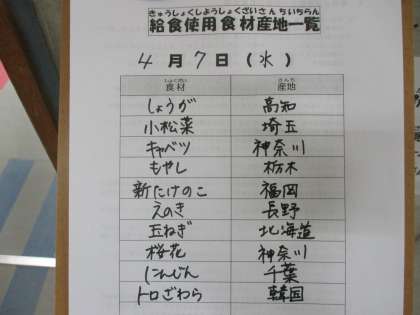 きゅうしょくしようしょくざいさんちいちらん
給食使用食材産地一覧
4月7日(水)
しょくざい さんち
食材 産地
しょうが 高知
小松菜 埼玉
キャベツ 神奈川
もやし 栃木
新たけのこ 福岡
えのき 長野
玉ねぎ 北海道
桜花 神奈川
にんじん 千葉
トロざわら 韓国